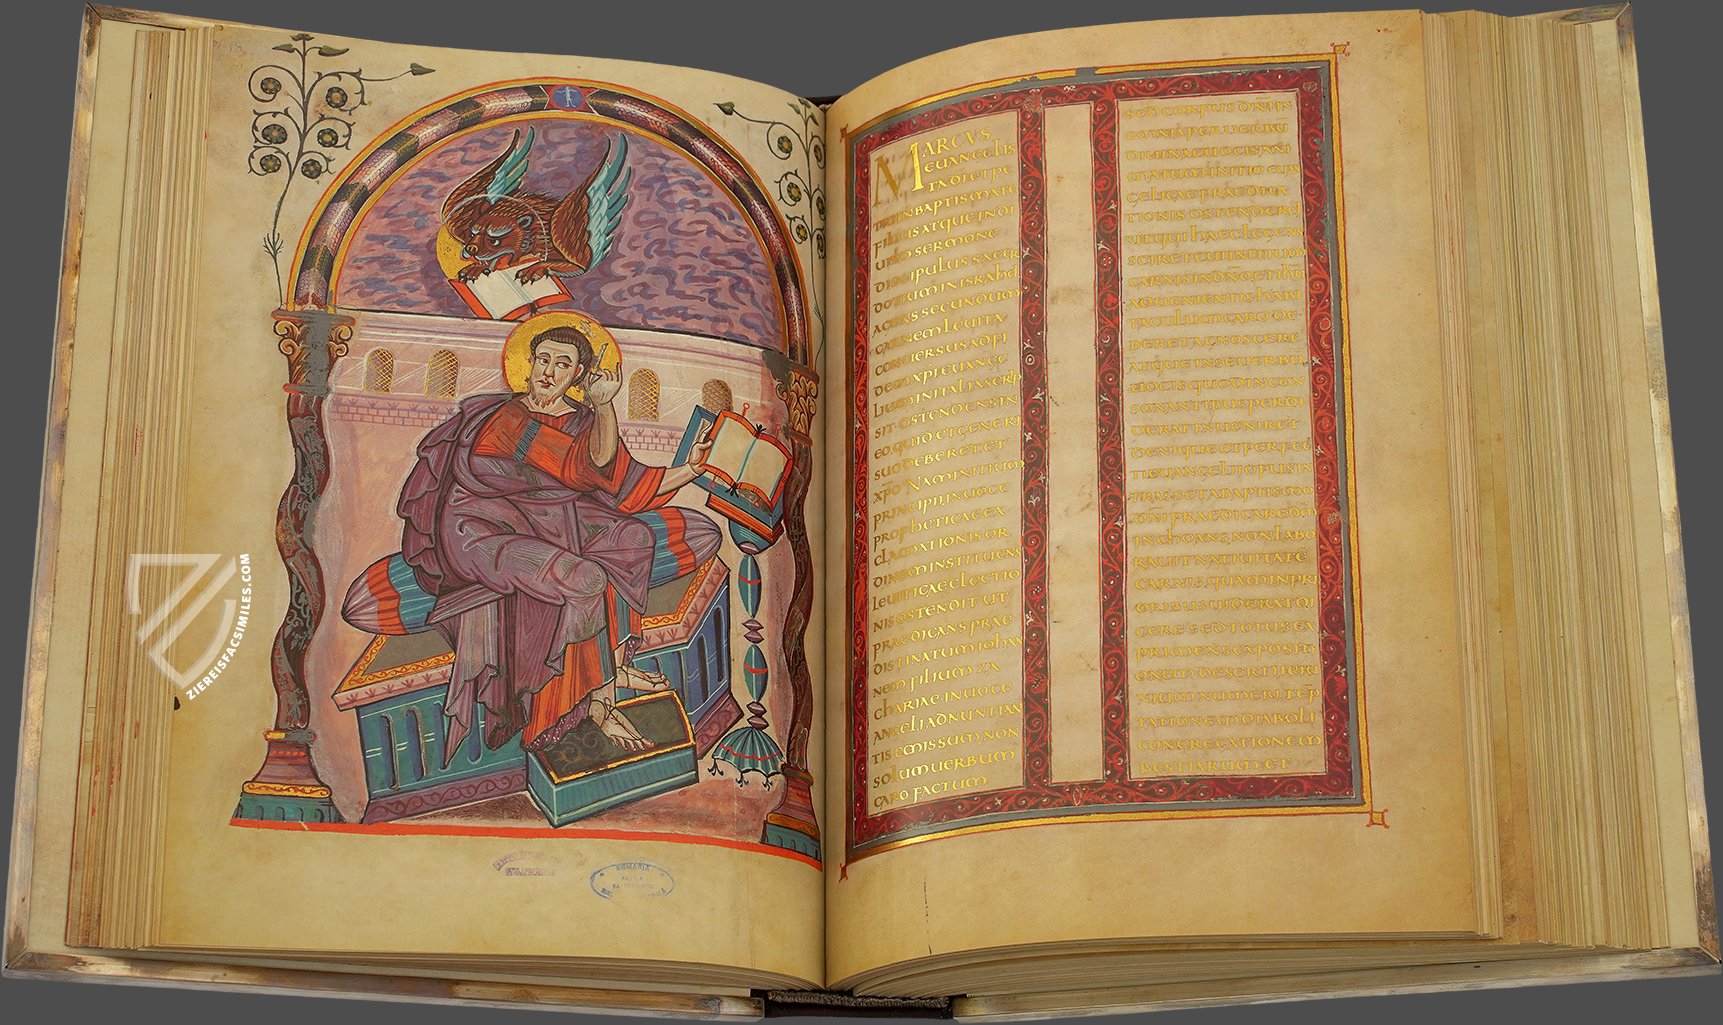 MARCVS
EUANGELIS
TA DI ET PE
TRI IN BAPTISMATE
FILIUS ATQUE IN DI
UINO SERMONE
DISCIPULUS SACER
DOTIUM IN ISRAHEL
AGENS SECUNDUM
CARNEM LEUITA
CONUERSUS AD FI
DEM XPI EUANGE
LIUM IN ITALIA SCRIP
SIT OSTENDENS IN
EO QUID ET GENERI
SUO DEBERET ET
XPO NAM INITIUM
PRINCIPII IN UOCE
PROPHETICAE EX
CLAMATIONIS OR
DINEM INSTITUENS
LEUITICAE LECTIO
NIS OSTENDIT UT
PRAEDICANS PRAE
DISTINATUM IOHAN
NEM FILIUM ZA
CHARIAE IN UOCE
ANGELI ADNUNTIAN
TIS EMISSUM NON
SOLUM UERBUM
CARO FACTUM
SED CORPUS DNI IN
DIUINAE UOCIS ANI
MATUM INITIO EUAN
GELICAE PRAEDICA
TIONIS OSTENDERET
UT QUI HAEC LEGENS
SCIRET CUI INITIUM
CARNIS IN DNO ET IHU
ADUENIENTIS HABI
TACULUM CARO DE
BERET AGNOSCERE
ATQUE IN SE UERBUM
UOCIS QUOD IN CON
SONANTIBUS PERDI
DERAT INUENIRET
DENIQUE ET PERFEC
TI EUANGELII OPUS IN
TRANS ET A BAPTISMO
DNI PRAEDICARE DM
INCHOANS NON LABO
RAUIT NATIUITATE
CARNIS QUAM IN PRI
ORIBUS UIDERAT DI
CERE SED TOTUS EX
PRIMENS EXPOSITI
ONEM DESERTI IEIU
NIUM NUMERI TEMP
TATIONEM DIABOLI
CONGREGATIONEM
BESTIARUM ET
ZIEREISFACSIMILES.COM